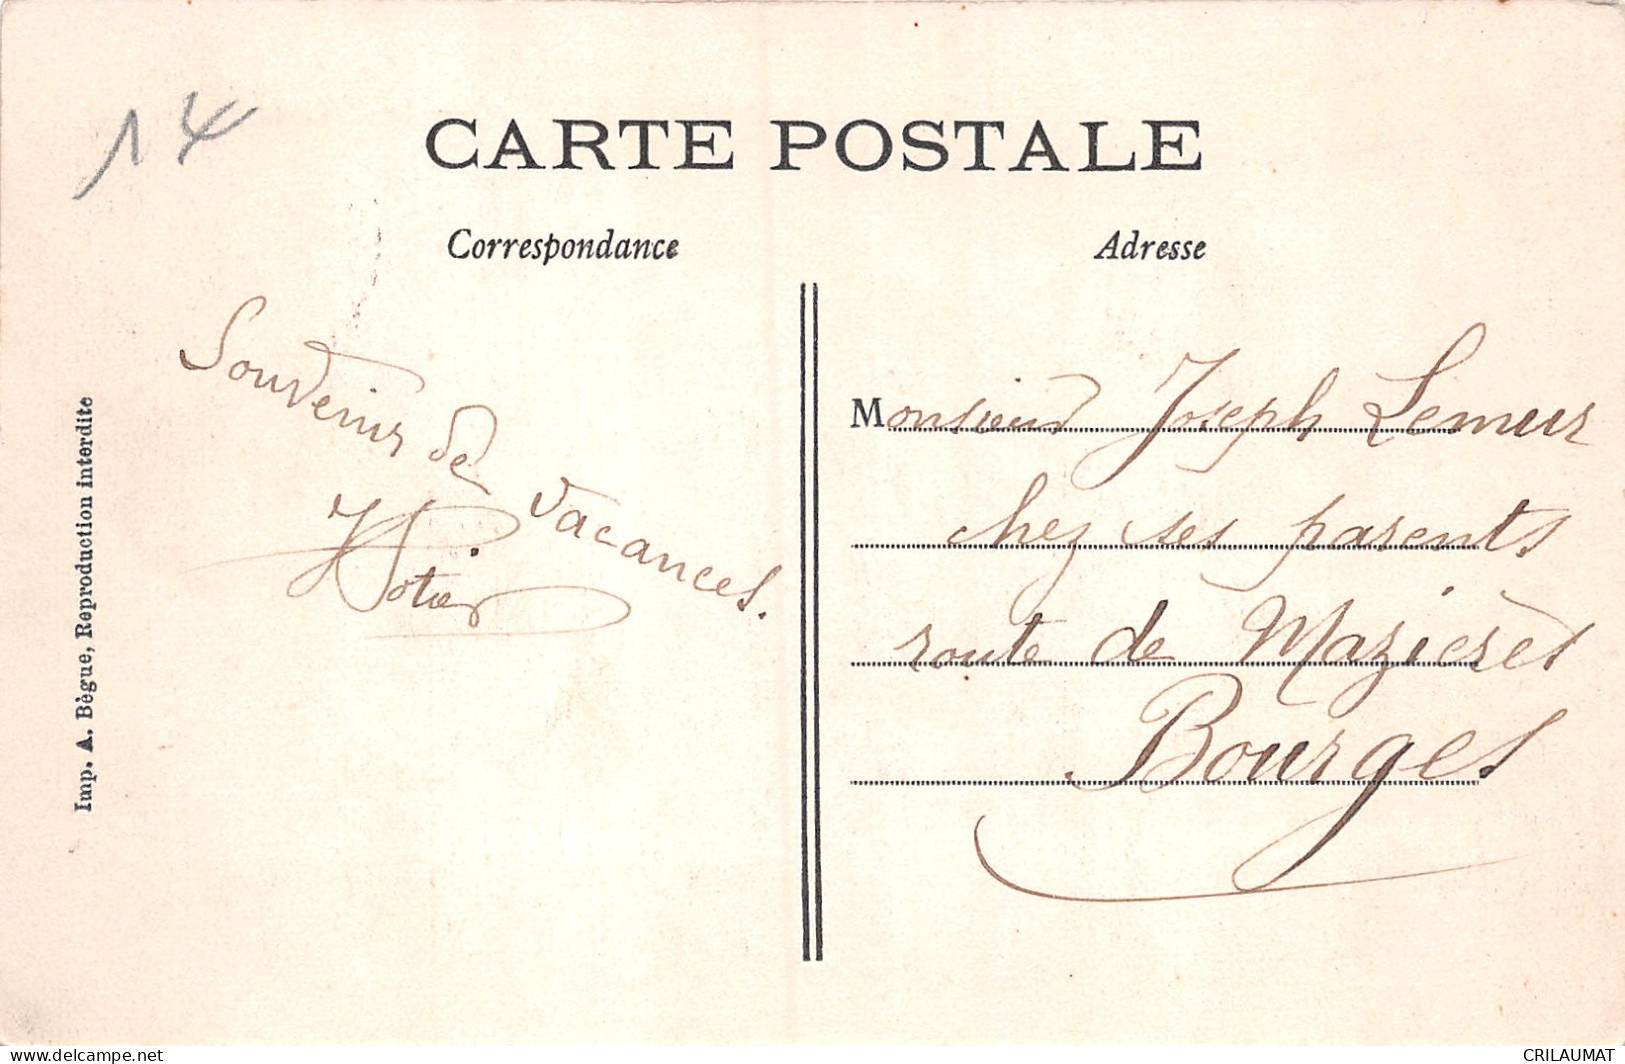 14
CARTE POSTALE
Correspondance
Adresse
Souvenir de vacances.
Potier
Monsieur Joseph Lemeur
chez ses parents
route de Mazières
Bourges
Imp. A. Bègue, Reproduction interdite
www.delcampe.net
CRILAUMAT